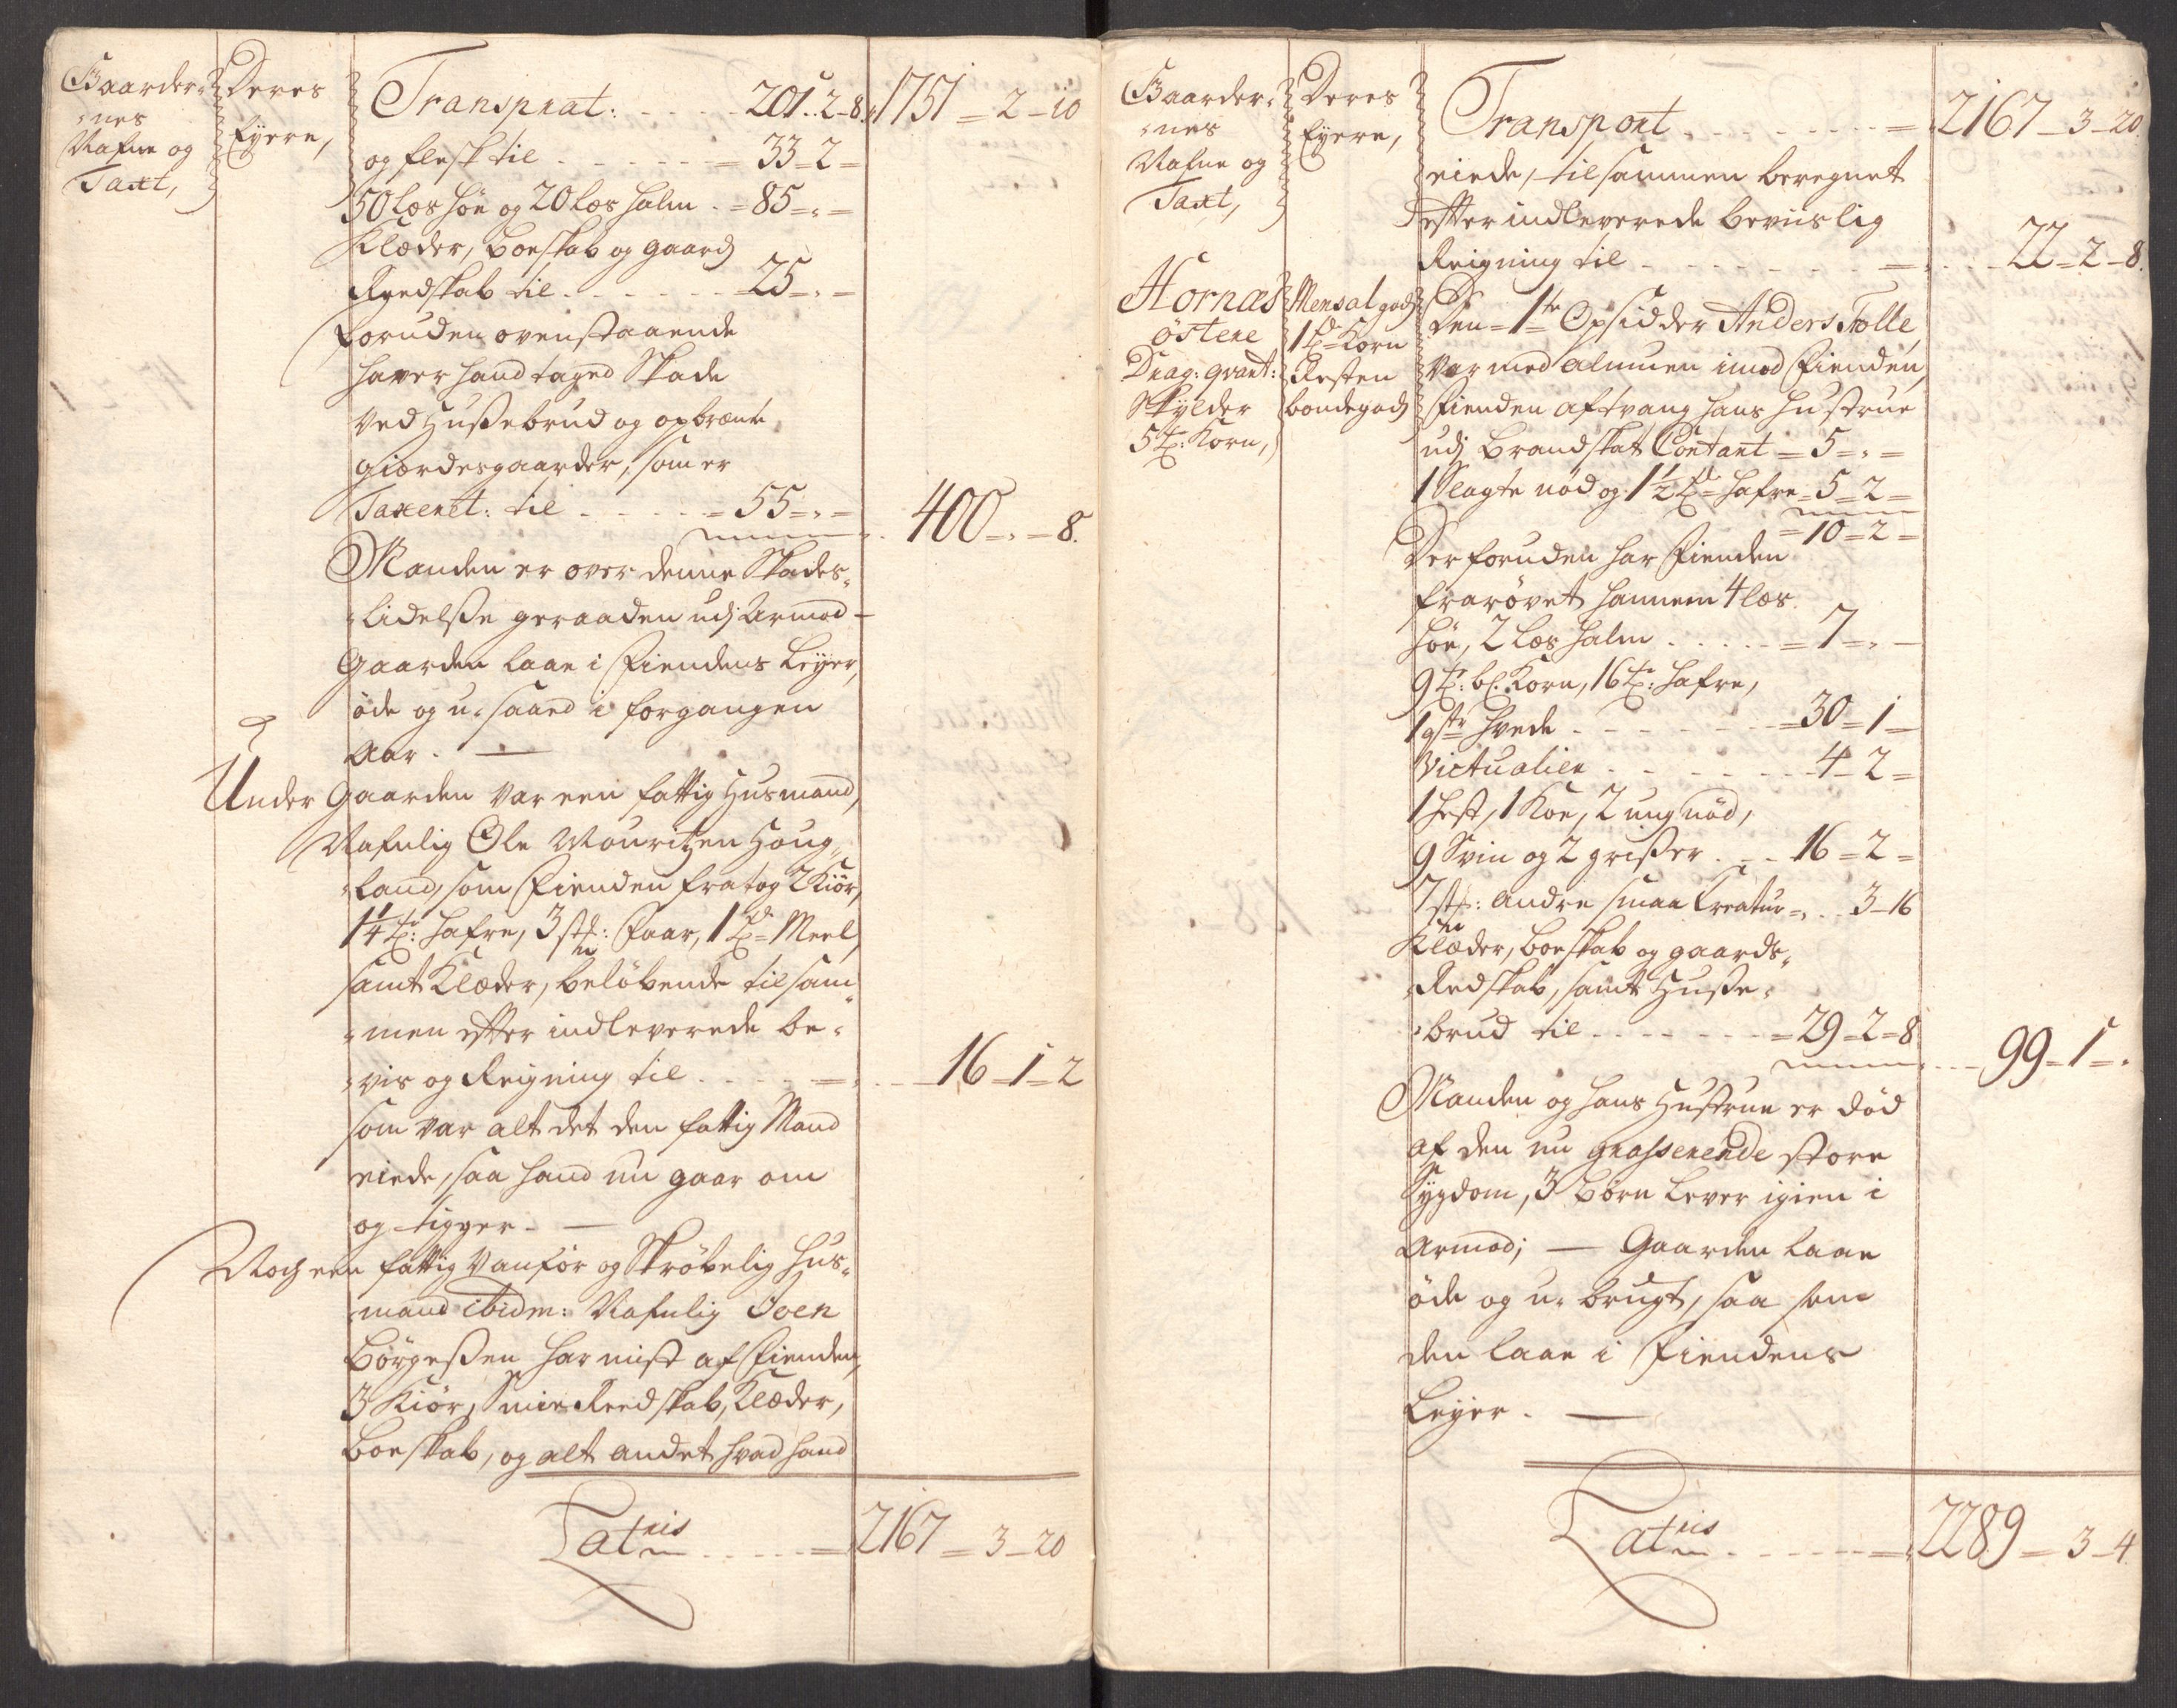 Gaarder-
-nes
Nafne og
Taxt,
Deres
Eyere,
Transprat: - - - - 201..2-8. 1751 = 2 - 10
og flesk til - - - - - = 33 - 2 =
50 læs høe og 20 læs halm . = 85 = „ =
Klæder, boeskab og gaards
Reedskab til - - - - - - = 25 = „ =
foruden ovenstaaende
haver hand taged Skade
ved Hussebrud og opbrænte
gierdesgaarder, som er
Taxeret: til - - - - - = 55 = „ = 400 = „ - 8.
Manden er over denne Skades-
-lidelsse geraaden udj Armod -
Gaarden laae i Fiendens Leyer,
øde og u-saaed i forgangen
Aar. —
Under Gaarden var een fattig Husmand,
Nafnlig Ole Mouritzen Houg-
-land, som Fienden fratog 2 Kiør,
1¼ tr: hafre, 3 stk: Faar, 1 td= Meel
samt Klæder, beløbende tilsam
-men efter indleverede be-
-vis og Reigning til - - - - = - - 16 - 1 - 2
som var alt det den fattig Mand
eiede, saa hand nu gaar om
og tigger. —
Noch een fattig vanfør og Skrøbelig Hus-
-mand ibidm: Nafnlig Joen
Børgessen har mist af Fienden,
3 Kiør, Smie Reedskab, Klæder,
Boeskab, og alt andet hvad hand
Latris - - - - = 2167 = 3 - 20
Gaarder-
-nes
Nafne og
Taxt,
Deres
Eyere,
Transport - - - - - - - = 2167 - 3 - 20.
eiede, tilsammen beregnet
efter indleverede beviislig
Reigning til - - - - - - - = - - - 22 = 2 - 8.
Hornæs
østere
Drag: qvart:
Skylder
5 tr: Korn,
Mensal gods
1 td= Korn
Resten
bondegods
Den 1te Opsidder Anders Tolle,
var med almuen imod Fienden,
Fienden aftvang hans hustrue
udj Brandskat Contant = 5 = „ =
1 Slagte nød og 1½ td= hafre = 5 = 2 =
= 10 = 2 =
Derforuden har Fienden
frarøvet hannem 4 læs
høe, 2 læs halm . . . . . = 7 = „ —
9 tr: bl. Korn, 16 tr: hafre,
1 qtr hvede - - - - - - - = 30 = 1 —
Victualier - - - - - - - 4 - 2 =
1 hest, 1 Koe, 2 ung nød,
9 Svin og 2 grisser . - - 16 = 2 =
7 stk: andre smaa Creatur = „ . . 3 - 16
Klæder, boeskab og gaards-
-Redskab, samt Husse-
-brud til - - - - - - - = 29 = 2 = 8 - - - 99 = 1 = „
Manden og hans Hustrue er død
af den nu grasserende store
Sygdom, 3 Børn lever igien i
Armod; — Gaarden laae
øde og u-brugt, saa som
den laae i Fiendens
Leyer. —
Latris - - - - - - = 2289 = 3 - 4.